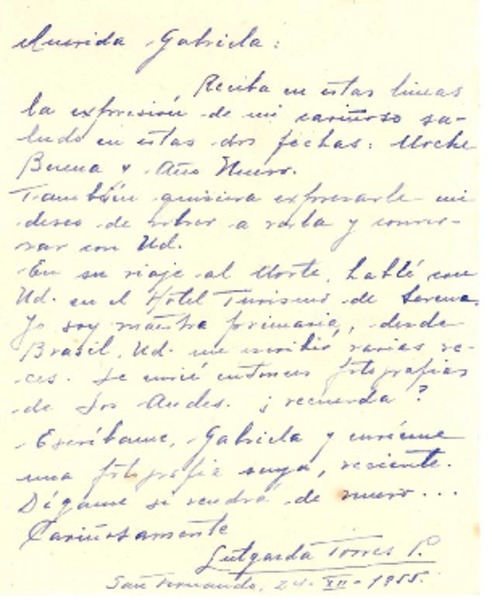 Querida Gabriela:
Reciba en estas lineas
la expresión de mi cariñoso sa-
ludo en estas dos fechas: Noche
Buena y Año Nuevo.
También quisiera expresarle mi
deseo de volver a verla y conver-
sar con Ud.
En su viaje al Norte, hablé con
Ud. en el Hotel Turismo de Serena.
Yo soy maestra primaria, desde
Brasil, Ud. me escribió varias ve-
ces. Le envié entonces fotografias
de Los Andes. ¿recuerda?
Escríbame, Gabriela y envíeme
una fotografia suya, reciente.
Dígame si vendrá de nuevo...
Cariñosamente
Lutgarda Torres P.
San Fernando, 24-XII-1955.